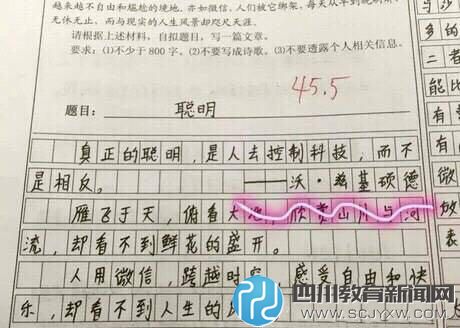 越来越不自由和尴尬的境地。亦如微信,人们被它绑架,每天从早到晚刷屏
无休无止,而与现实的人生风景却咫尺天涯。
请根据上述材料,自拟题目,写一篇文章。
要求:(1)不少于800字。(2)不要写成诗歌。(3)不要透露个人相关信息。
45.5
题目: 聪明
真正的聪明,是人去控制科技,而不
是相反。 ——沃·兹基硕德
雁飞于天,俯看大地,欣赏山川与河
流,却看不到鲜花的盛开。
人用微信,跨越时空,感受自由和快
乐,却看不到人生的风
与沙
多的
二者
有
有
微
放
表
四川教育新闻网
WWW.SCJYXW.COM